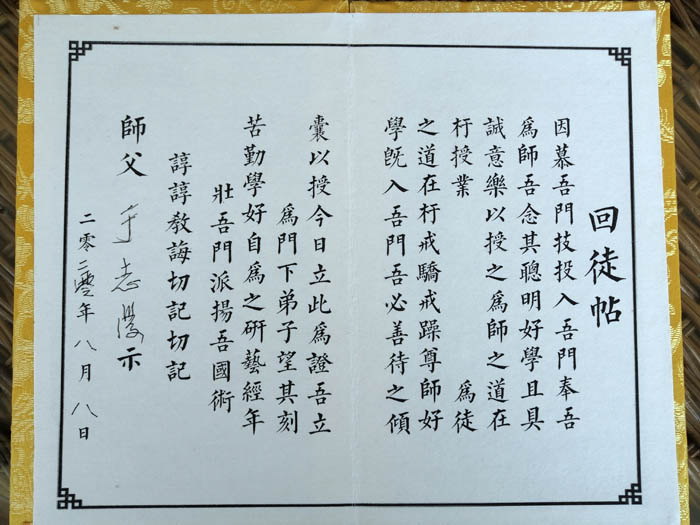 回徒帖
因慕吾門技投入吾門奉吾
爲師吾念其聰明好學且具
誠意樂以授之爲師之道在
杅授業 爲徒
之道在杅戒驕戒躁尊師好
學既入吾門吾必善待之傾
囊以授今日立此爲證吾立
爲門下弟子望其刻
苦勤學好自爲之研藝經年
壯吾門派揚吾國術
諄諄教誨切記切記
師父 志 示
二零二零年八月八日